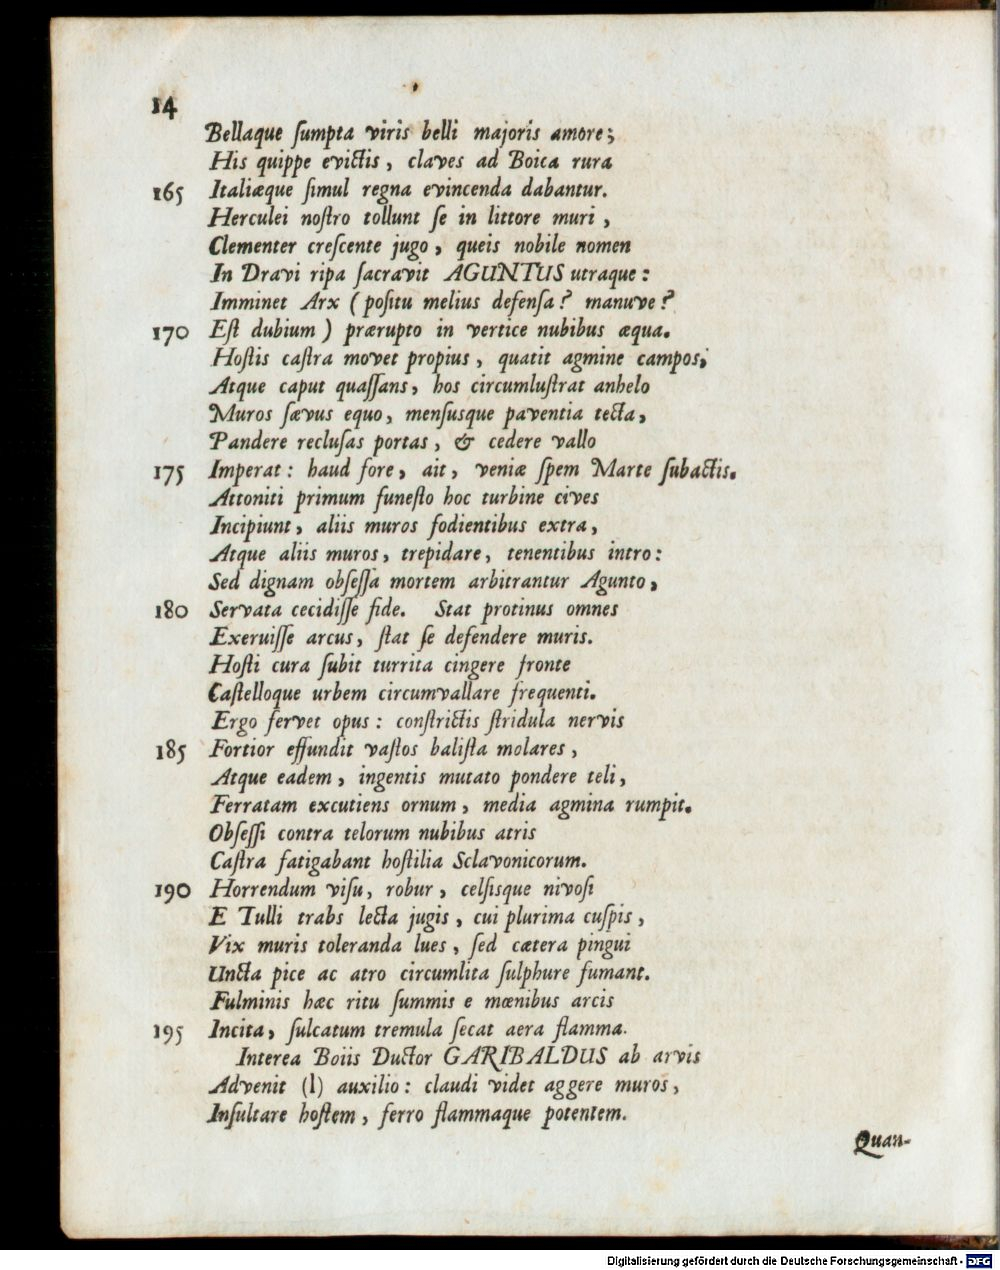 14
Bellaque ſumpta viris belli majoris amore;
His quippe evictis, claves ad Boica rura
165 Italiæque ſimul regna evincenda dabantur.
Herculei noſtro tollunt ſe in littore muri,
Clementer creſcente jugo, queis nobile nomen
In Dravi ripa ſacravit AGUNTUS utraque:
Imminet Arx (poſitu melius defenſa? manuve?
170 Eſt dubium) prærupto in vertice nubibus æqua.
Hoſtis caſtra movet propius, quatit agmine campos;
Atque caput quaſſans, hos circumluſtrat anhelo
Muros ſævus equo, menſusque paventia tecta,
Pandere recluſas portas, & cedere vallo
175 Imperat: haud fore, ait, veniæ ſpem Marte ſubactis.
Attoniti primum funeſto hoc turbine cives
Incipiunt, aliis muros fodientibus extra,
Atque aliis muros, trepidare, tenentibus intro:
Sed dignam obſeſſâ mortem arbitrantur Agunto,
180 Servata cecidiſſe fide. Stat protinus omnes
Exeruiſſe arcus, ſtat ſe defendere muris.
Hoſti cura ſubit turrita cingere fronte
Caſtelloque urbem circumvallare frequenti.
Ergo fervet opus: conſtrictis ſtridula nervis
185 Fortior effundit vaſtos baliſta molares,
Atque eadem, ingentis mutato pondere teli,
Ferratam excutiens ornum, media agmina rumpit.
Obſeſſi contra telorum nubibus atris
Caſtra fatigabant hoſtilia Sclavonicorum.
190 Horrendum viſu, robur, celſisque nivoſi
E Tulli trabs lecta jugis, cui plurima cuſpis,
Vix muris toleranda lues, ſed cætera pingui
Uncta pice ac atro circumlita ſulphure fumant.
Fulminis hæc ritu ſummis e mœnibus arcis
195 Incita, ſulcatum tremula ſecat aera flamma.
Interea Boiis Ductor GARIBALDUS ab arvis
Advenit (l) auxilio: claudi videt aggere muros,
Inſultare hoſtem, ferro flammaque potentem.
Quan-
Digitalisierung gefördert durch die Deutsche Forschungsgemeinschaft - DFG